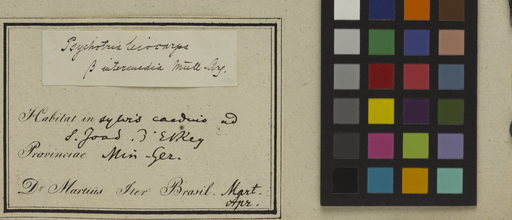 Psychotria leiocarpa
β intermedia Müll. Arg.
Habitat in sylvis caeduis ad
S. Joao d'ElRey
Provinciae Min. Ger.
Dr Martius Iter Brasil. Mart.
Apr.